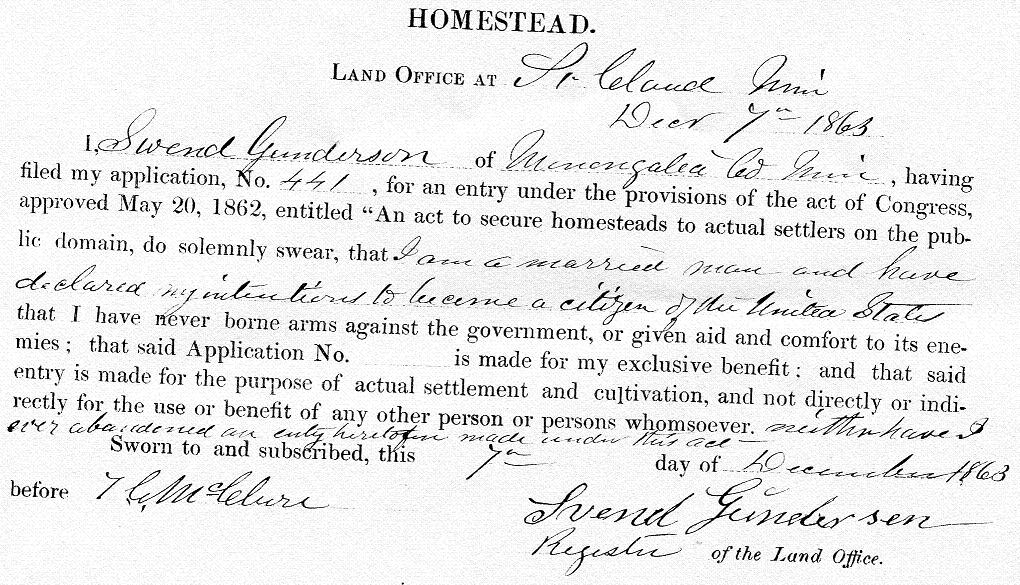 HOMESTEAD.
LAND OFFICE AT St Cloud Min
Decr 7th 1863
I, Swend Gunderson of Monongalea Co Min, having
filed my application, No. 441, for an entry under the provisions of the act of Congress,
approved May 20, 1862, entitled “An act to secure homesteads to actual settlers on the pub-
lic domain, do solemnly swear, that I am a married man and have
declared my intentions to become a citizen of the United States
that I have never borne arms against the government, or given aid and comfort to its ene-
mies; that said Application No. is made for my exclusive benefit: and that said
entry is made for the purpose of actual settlement and cultivation, and not directly or indi-
rectly for the use or benefit of any other person or persons whomsoever. neither have I
ever abandoned an entry heretofore made under this act
Sworn to and subscribed, this 7th day of December 1863
before T C McClure
Svend Gundersen
Register of the Land Office.